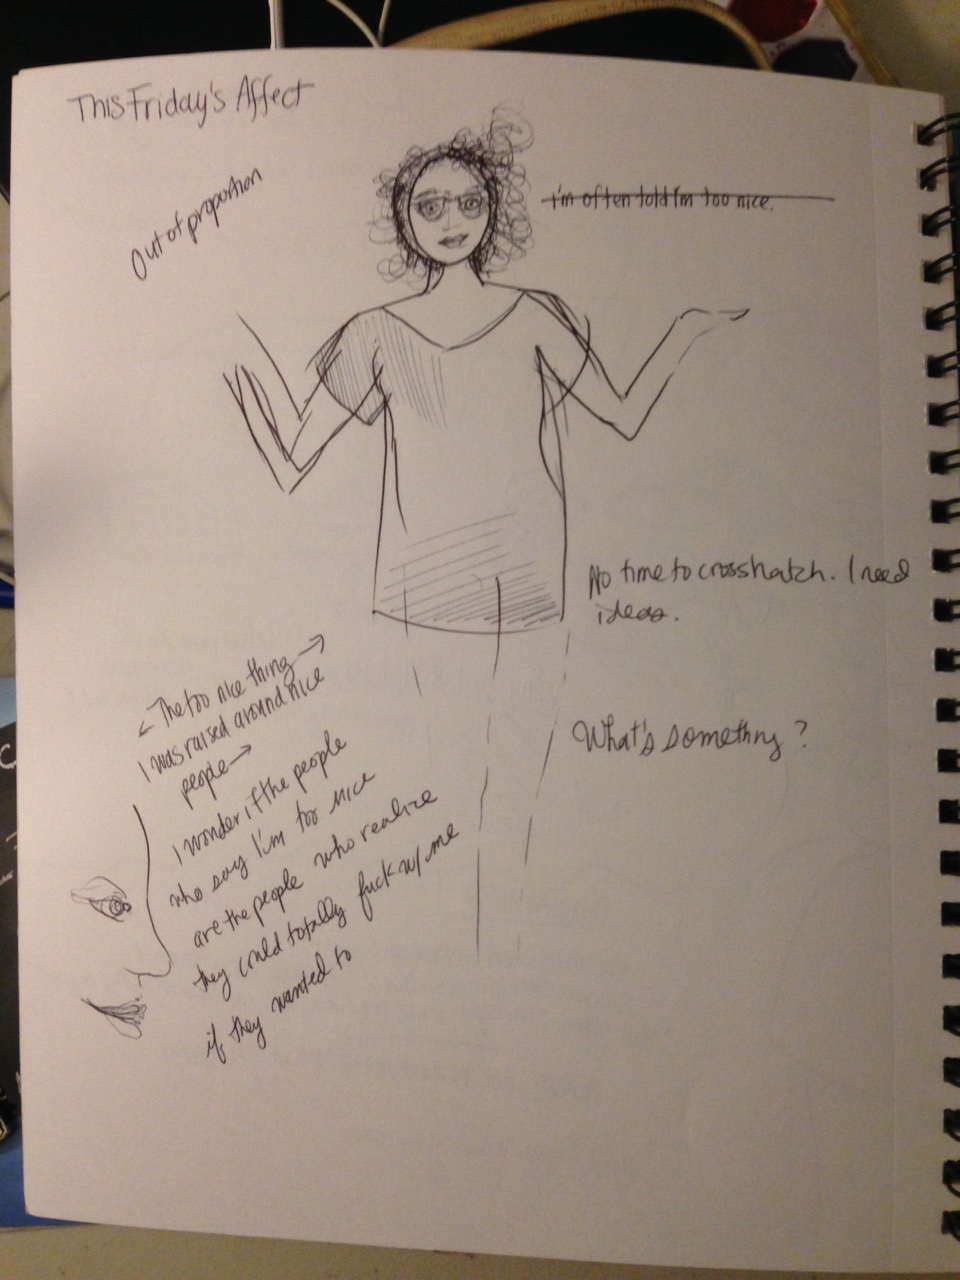 This Friday's Affect
Out of proportion
I'm often told I'm too nice.
No time to crosshatch. I need
ideas.
The too nice thing
I was raised around nice
people
What's something?
I wonder if the people
who say I'm too nice
are the people who realize
they could totally fuck w/ me
if they wanted to